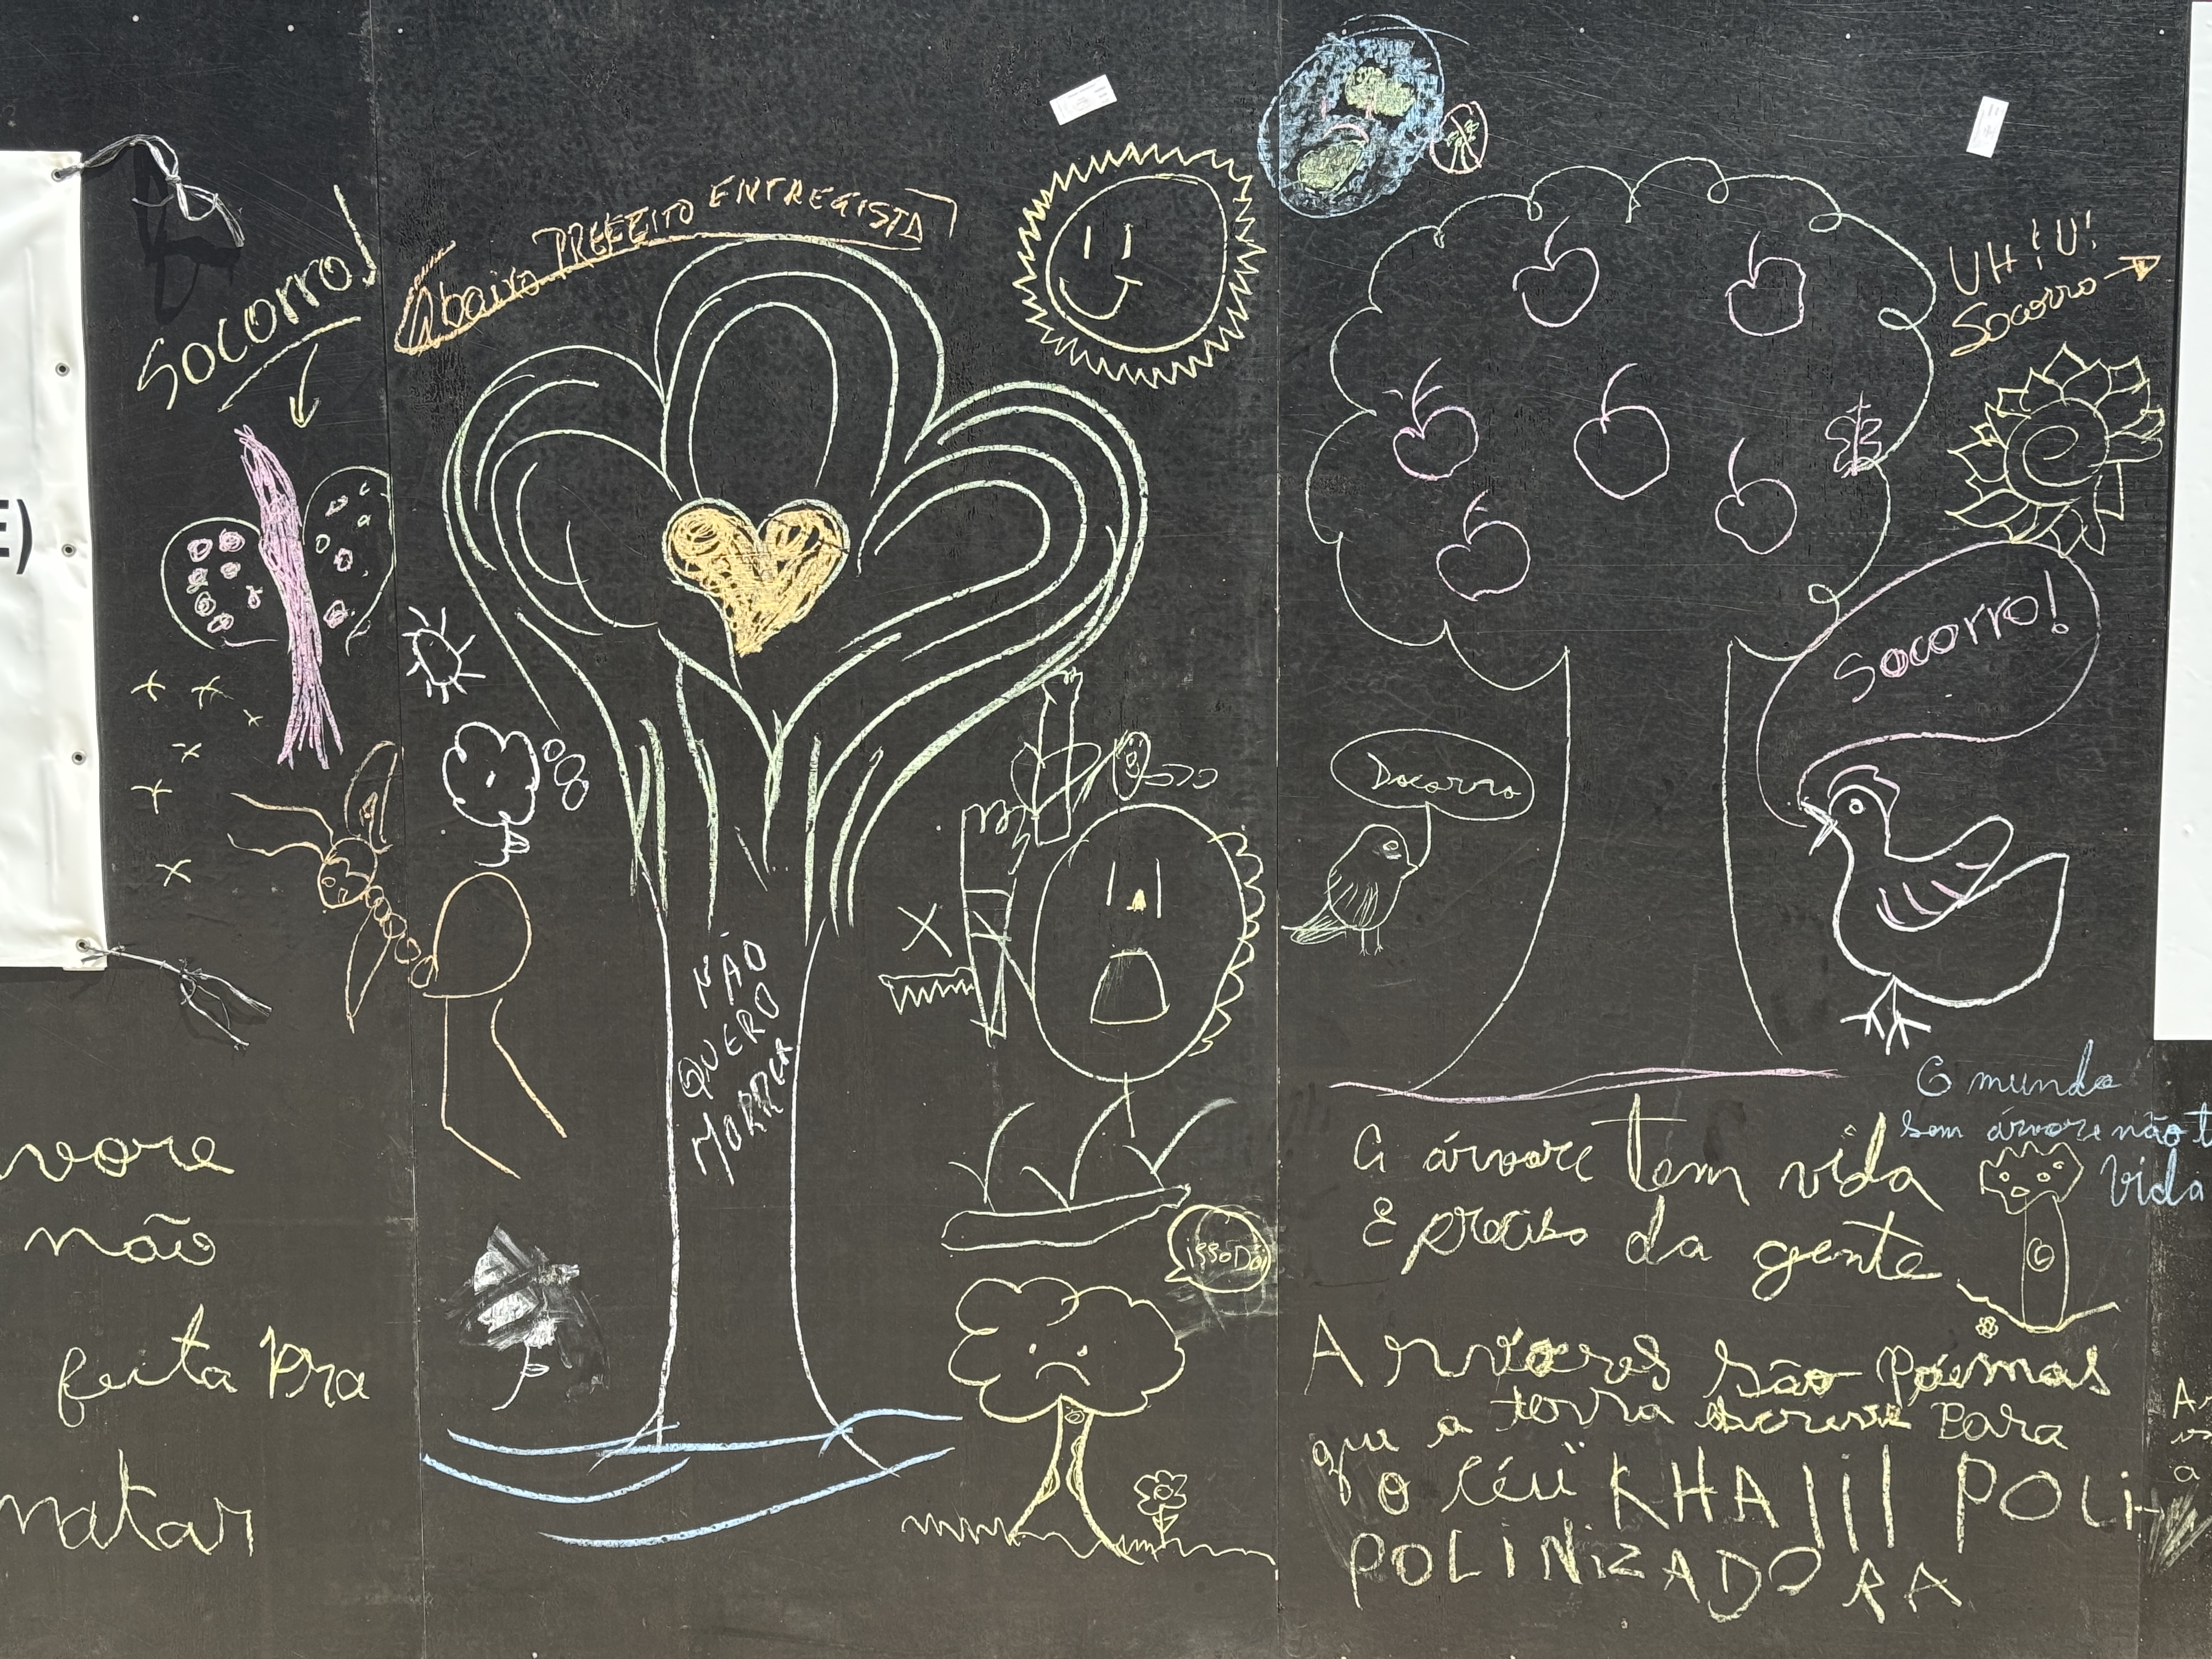 E)
Socorro!
Abaixo PREFEITO ENTREGISTA
UH! U!
Socorro
Socorro!
Socorro
NÃO
QUERO
MORRER
vore
não
feita pra
matar
isso Dói
O mundo
sem árvore não t
vida
A árvore tem vida
E preciso da gente
Arvores são Poemas
que a terra escreve para
o céu KHAlil POLI-
POLINiZADORA